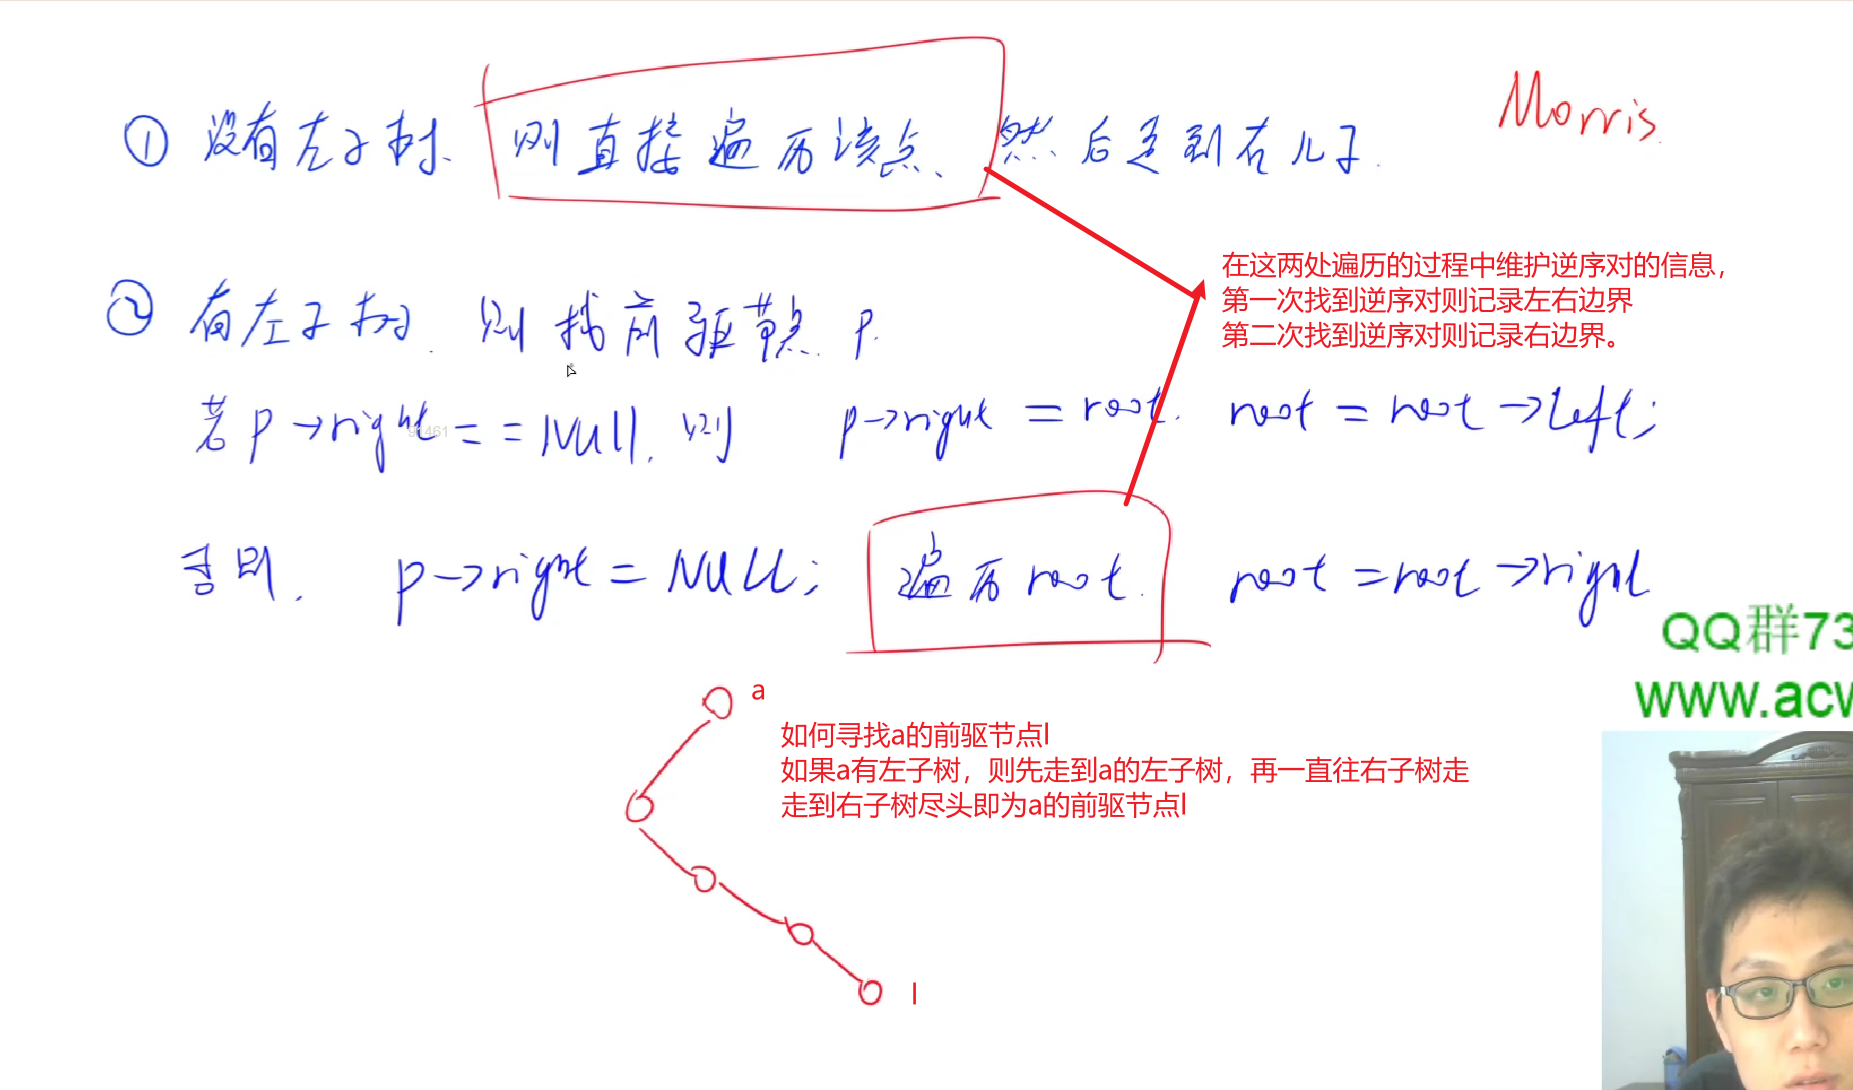 ① 没有左子树、则直接遍历该点、然后走到右儿子.
Morris.
② 有左子树. 则找前驱节点 p.
在这两处遍历的过程中维护逆序对的信息，
第一次找到逆序对则记录左右边界
第二次找到逆序对则记录右边界。
若 p->right == Null, 则 p->right = root. root = root->left;
91461
否则. p->right = NULL; 遍历 root. root = root->right
QQ群73
www.acw
a
如何寻找a的前驱节点l
如果a有左子树，则先走到a的左子树，再一直往右子树走
走到右子树尽头即为a的前驱节点l
l